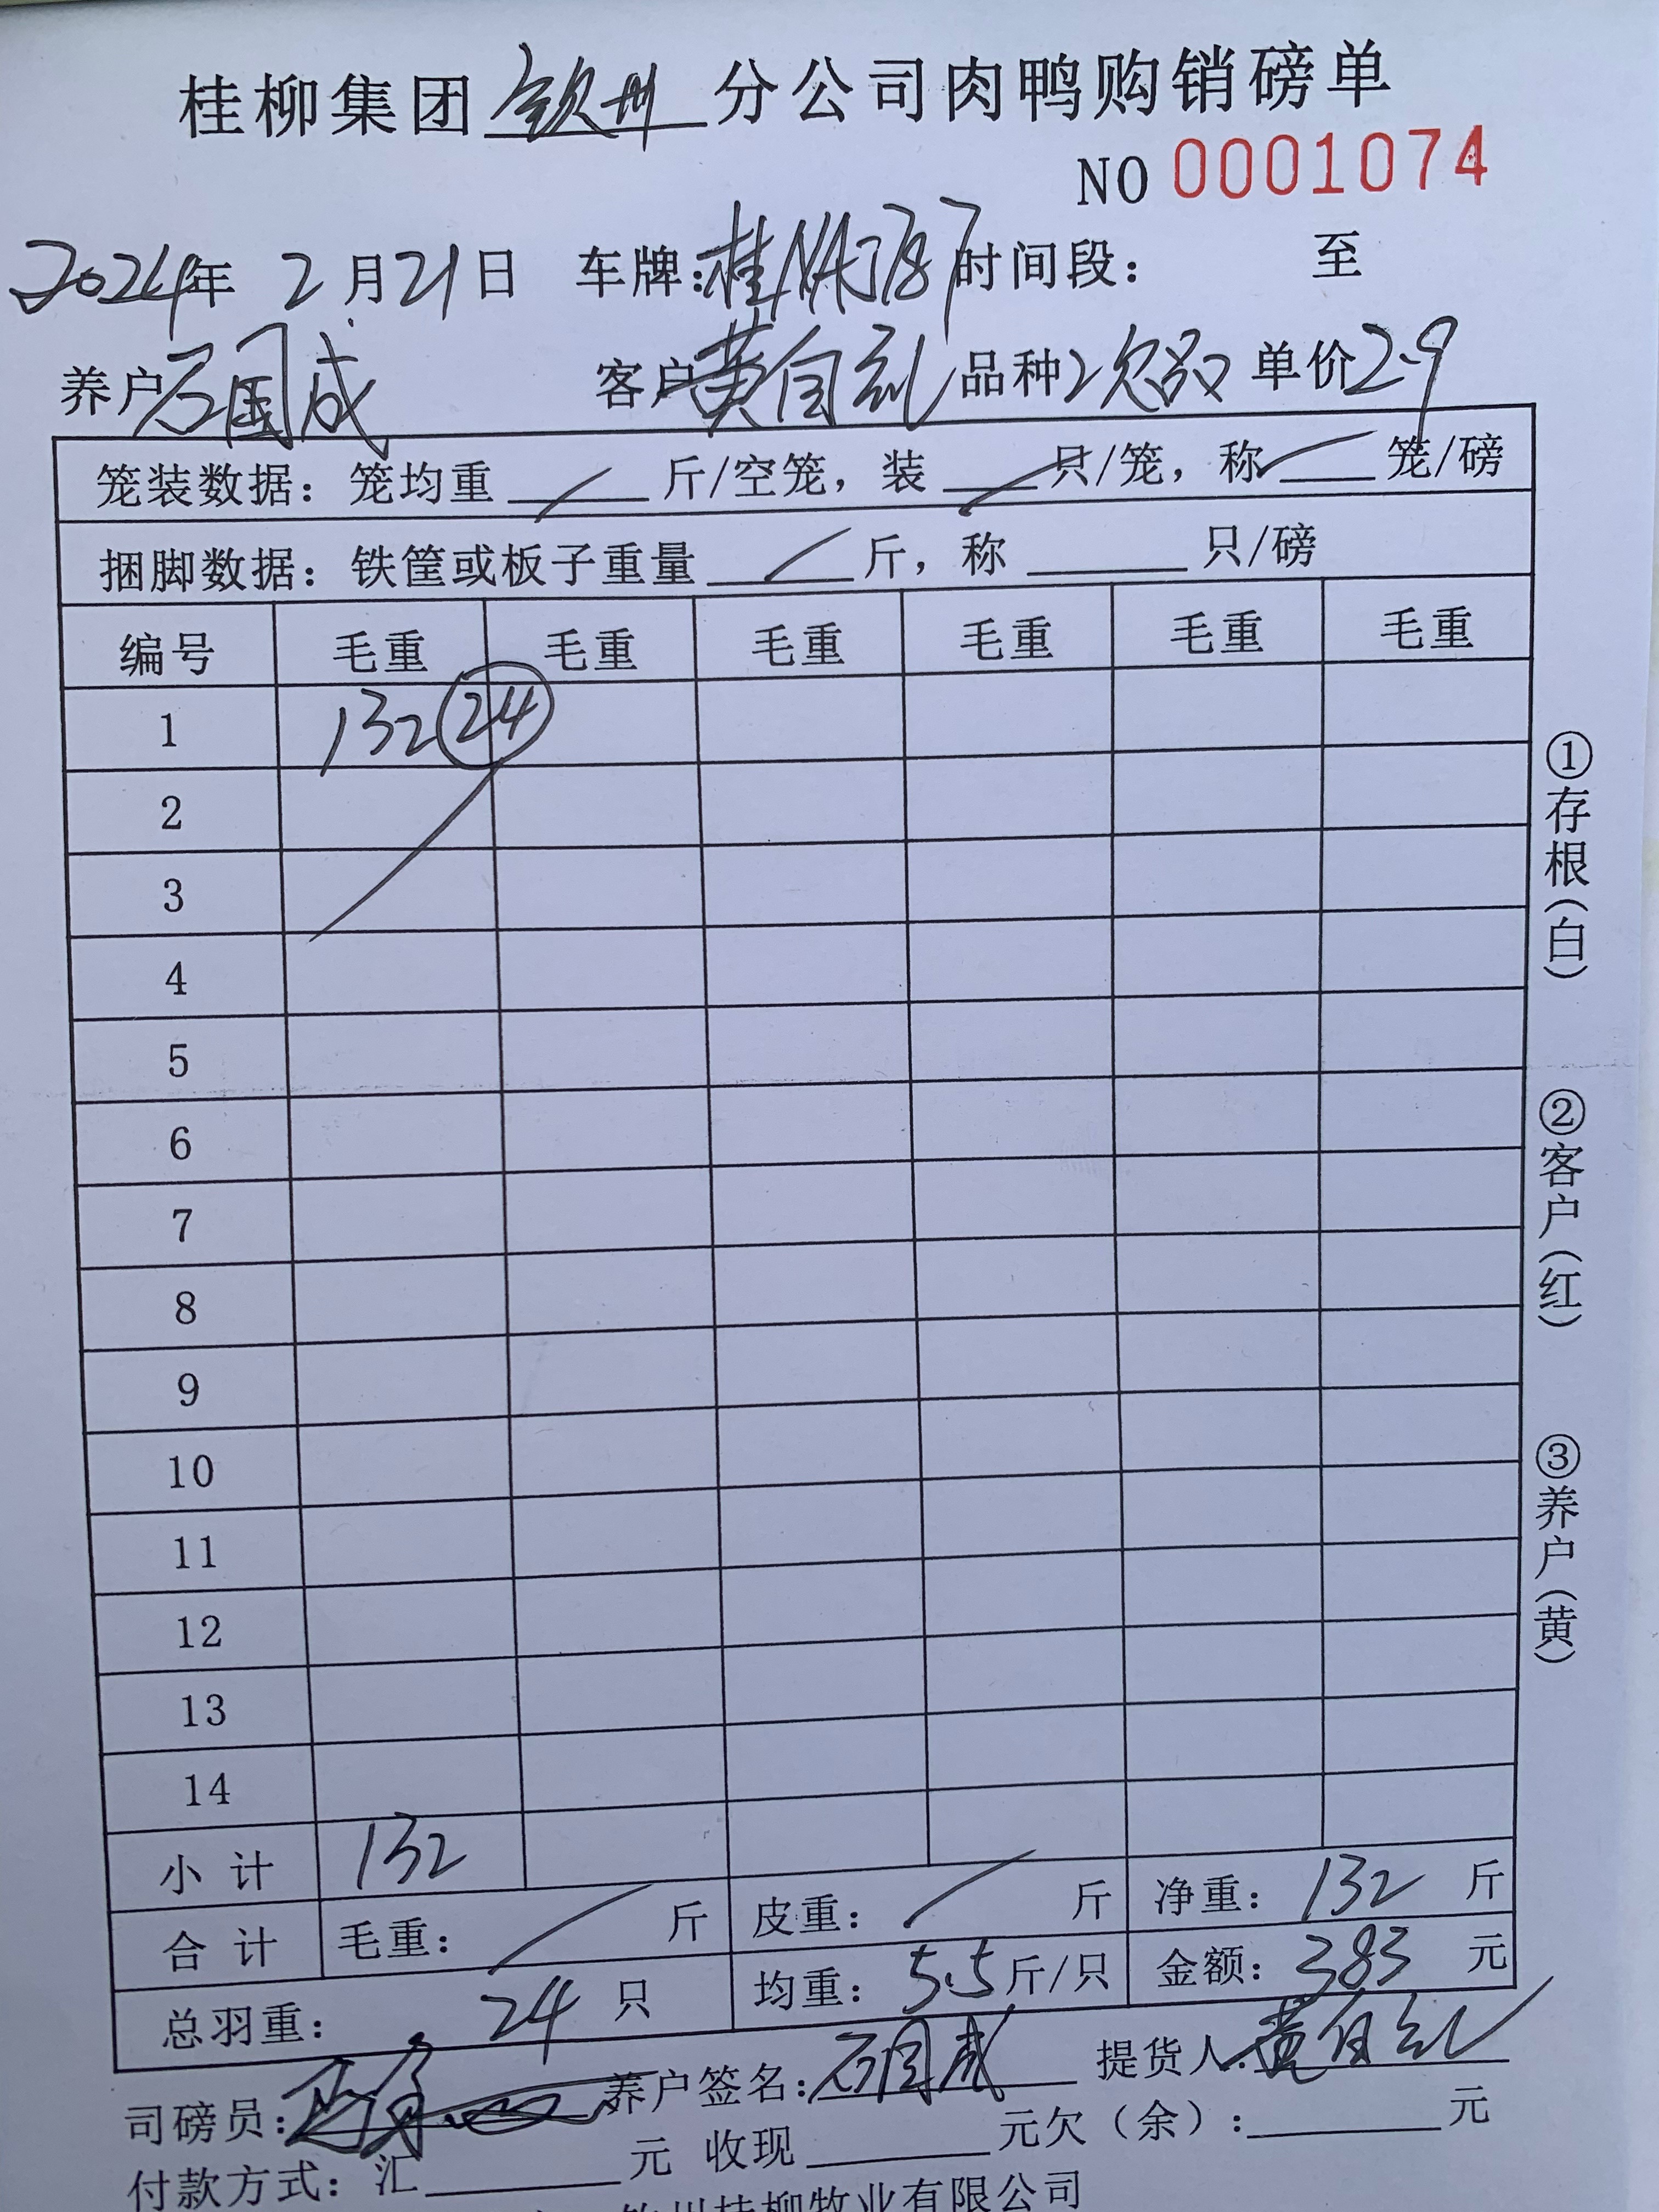 桂柳集团钦州分公司肉鸭购销磅单
NO 0001074
2024年 2月21日 车牌:桂 时间段: 至
养户 石国成 客户 黄自 品种 次品 单价 2.9
笼装数据: 笼均重 斤/空笼, 装 只/笼, 称 笼/磅
捆脚数据: 铁筐或板子重量 斤, 称 只/磅
编号 毛重 毛重 毛重 毛重 毛重 毛重
1 132 24
2
3
4
5
6
7
8
9
10
11
12
13
14
小计 132
合计 毛重: 斤 皮重: 斤 净重: 132 斤
总羽重: 24 只 均重: 5.5 斤/只 金额: 383 元
司磅员: 养户签名: 石国成 提货人: 黄自
付款方式: 汇 元 收现 元欠(余): 元
钦州桂柳牧业有限公司
①存根(白)
②客户(红)
③养户(黄)